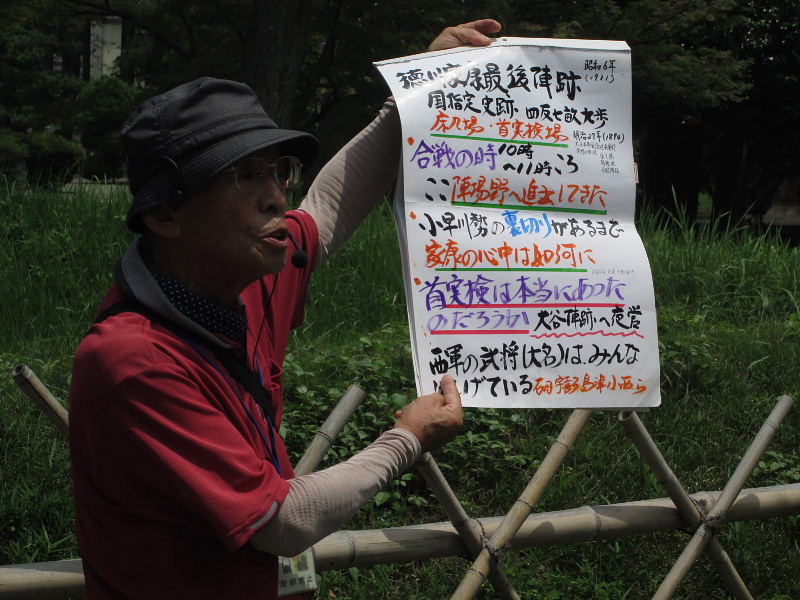 徳川家康最後陣跡 昭和6年
(1931)
国指定史跡・四反七畝大歩
床几場・首実検場 明治27年(1894)
合戦の時 10時
～11時ころ
ここ陣場野へ進出してきた
小早川勢の裏切りがあるまで
家康の心中は如何に
首実検は本当にあった
のだろうか 大谷陣跡へ夜営
西軍の武将(大名)は、みんな
にげている 石田宇喜多島津小西ら